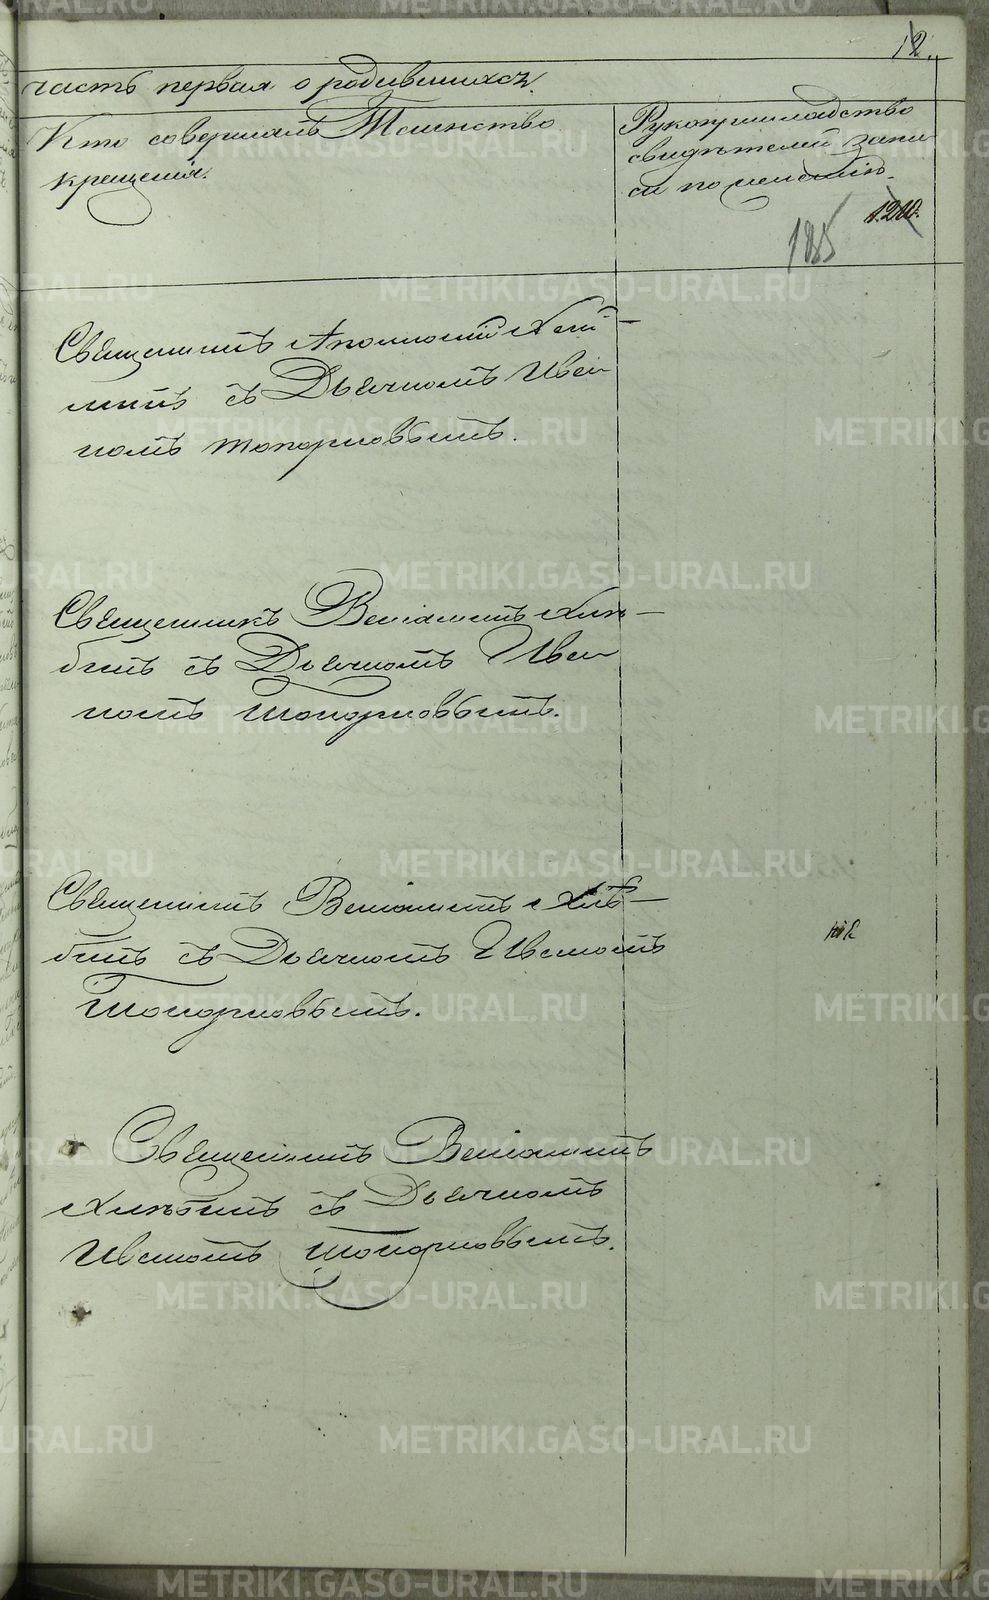 12
часть первая о родившихся.
Кто совершалъ Таинство
крещенія.
Рукоприкладство
свидѣтелей запи
си по желанію.
1210.
185
Священникъ Аполлоній
съ Дьячкомъ Ива
номъ Топорковымъ.
Священникъ Веніаминъ Хлѣ-
бинъ съ Дьячкомъ Ива
номъ Топорковымъ.
Священникъ Веніаминъ Хлѣ-
бинъ съ Дьячкомъ Иваномъ
Топорковымъ.
Священникъ Веніаминъ
Хлѣбинъ съ Дьячкомъ
Иваномъ Топорковымъ.
METRIKI.GASO-URAL.RU